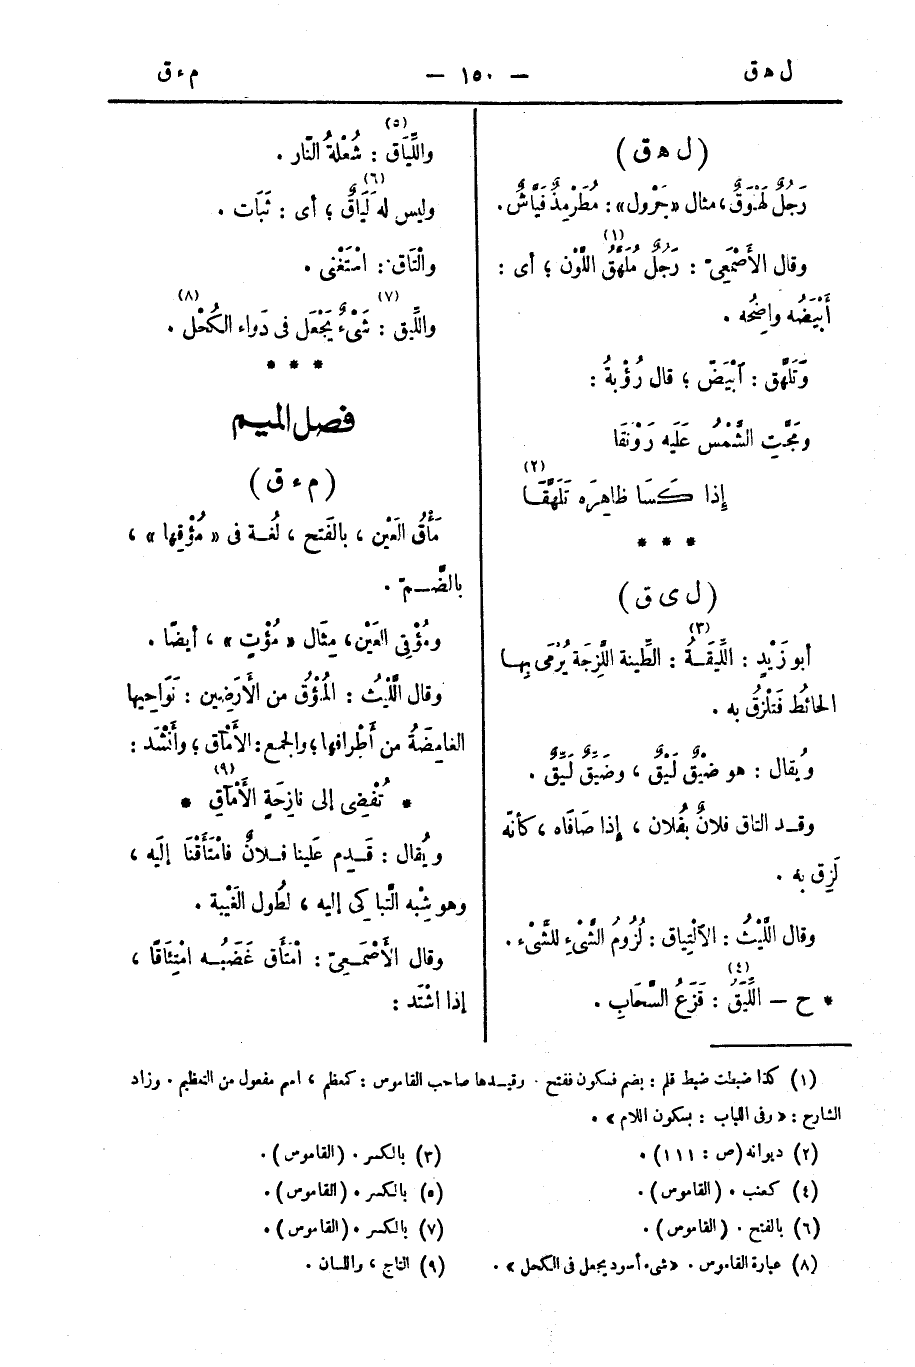 ل ه ق — ١٥٠ — م ء ق
(ل ه ق)
رَجُلٌ لَهْوَقٌ، مثال «جَرْول»: مُطَرْمِذٌ فَيَّاشٌ.
وقال الأَصْمَعِيّ: رَجُلٌ مُلْهَقُ (١) اللَّوْن؛ أى:
أَبْيَضُه واضِحُه.
وَتَلَهَّق: ابْيَضّ؛ قال رُؤْبةُ:
ومَجَّتِ الشَّمْسُ عَلَيه رَوْنَقَا
إِذا كَسَا ظاهِرَه تَلَهَّقَا (٢)
* * *
(ل ى ق)
أبو زَيْدٍ: اللِّيقَةُ (٣): الطِّينة اللَّزِجَة يُرْمَى بِها
الحائطُ فَتَلْزَقُ به.
ويُقال: هو ضَيْقٌ لَيْقٌ، وضَيِّقٌ لَيِّقٌ.
وقد الْتاق فلانٌ بِفُلان، إِذا صَافَاه، كأنّه
لَزِق به.
وقال اللَّيْثُ: الاْلْتِياق: لُزُومُ الشَّىْءِ للشَّىْء.
* ح — اللِّيَقُ (٤): قَزَعُ السَّحَابِ.
واللِّيَاق (٥): شُعْلةُ النّار.
وليس له لَيَاقٌ (٦)؛ أى: ثَبَات.
والْتَاق: اسْتَغْنى.
واللِّيق (٧): شَىْءٌ يُجْعَل فى دَواء الكُحْل (٨).
* * *
فصل الميم
(م ء ق)
مَأْقُ العَيْن، بالفَتح، لُغة فى «مُؤْقِها»،
بالضَّمّ.
ومُؤْقِي العَيْن، مِثَال «مُؤْتٍ»، أيضًا.
وقال اللَّيْثُ: المُؤْقُ من الأَرَضِين: نَوَاحِيها
الغامِضَةُ من أَطْرافها؛ والجمع: الأَمْآق؛ وأَنْشَد:
* تُفْضِى إلى نازِحَةِ الأَمْآقِ (٩) *
ويُقال: قَدِم عَلَينا فلانٌ فامْتَأَقْنَا إلَيه،
وهو شِبْه التَّباكِى إليه، لطُول الغَيْبة.
وقال الأَصْمَعِىّ: امْتَأَق غَضَبُه امْتِئَاقًا،
إذا اشْتَد:
(١) كذا ضبطت ضبط قلم: بضم فسكون ففتح. وقيدها صاحب القاموس: كمعظم، اسم مفعول من التعظيم. وزاد
الشارح: «وفى اللباب: بسكون اللام».
(٢) ديوانه (ص: ١١١). (٣) بالكسر. (القاموس).
(٤) كعنب. (القاموس). (٥) بالكسر. (القاموس).
(٦) بالفتح. (القاموس). (٧) بالكسر. (القاموس).
(٨) عبارة القاموس. «شىء أسود يجعل فى الكحل». (٩) التاج، واللسان.